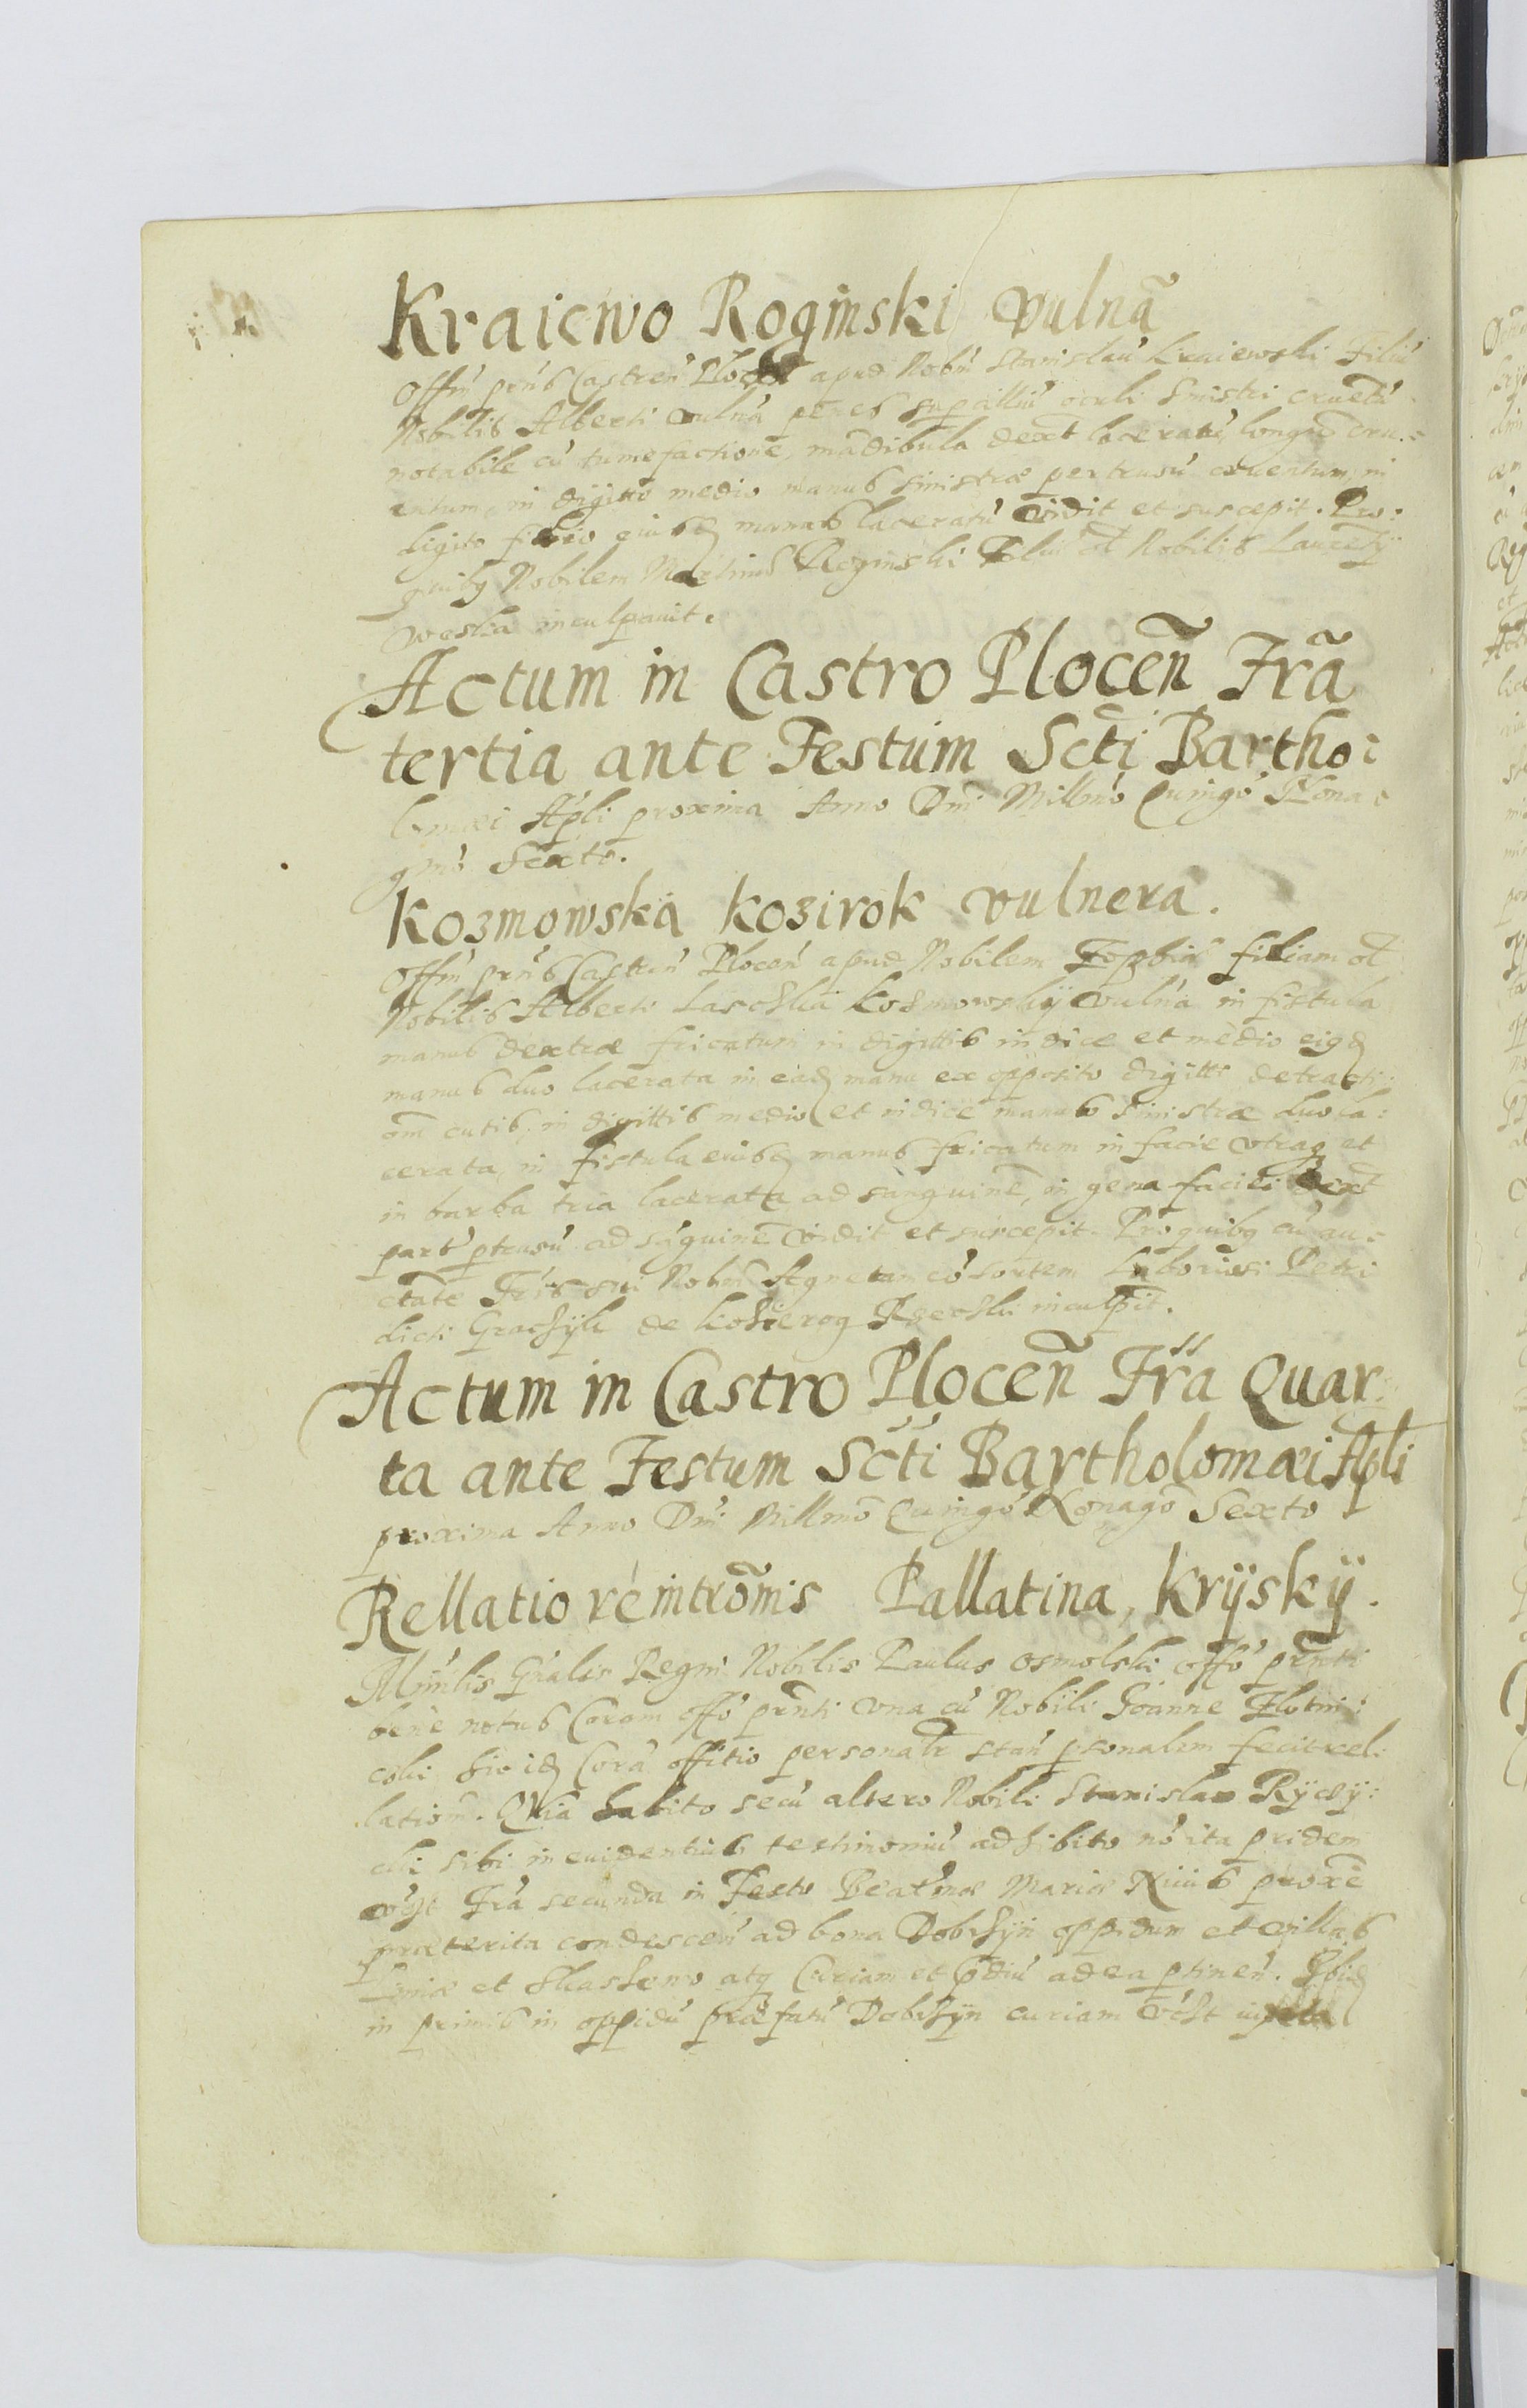 Kraiewo Roginski vulnã
Offm prñs Castreñ Plocen apud Nobm Stanislaũ Kraiewski Filiũ
Nobilis Alberti vulna penes supcilliũ oculi sinistri cruetũ
notabile cũ tumefactione, mãdibula dext laceratũ longũ cru:
entum, in digitto medio manus sinistræ pertusũ cruentum, in
digito eiusd manus laceratũ vidit et suscepit. Pro:
quibq Nobilem Martinũ Roginski Filiũ ol Nobilis Laurẽty
inculpauit.
Actum in Castro Ploceñ Frã
tertia ante Festum Scti Bartho:
lomæi Apli proxima Anno Dni Millmo Quingo Nona:
gmo Sexto.
Kozmowska kozirok vulnera.
Offm prñs Castreñ Ploceñ apud Nobilem Zophiã filiam ol
Nobilis Alberti Kosmowsky vulna in fistula
manus dextræ fricatum in digittis indice et medio eigd
manus duo lacerata in eãd manu ex opposito digitti detracti:
om cutis, in digittis medio et indice manus sinistræ duo la:
cerata, in fistula eiusd manus fricatum in facie vtraq et
in barba tria lacerata ad sanguinẽ, in gena faciei dext
part ptusũ ad sãguinẽ vidit et suscepit. Pro quibq cũ au:
ctate Fris sui Nobm Agnetam cõsortem Laboriosi Petri
dicti de inculpit.
Actum in Castro Ploceñ Fra Quar:
ta ante Festum Scti Bartholomæi Apli
proxima Anno Dni Millmo Quingo Nonagõ Sexto
Rellatio reintrõmis Pallatina, Krÿskÿ.
Mynlis Gralis Regni Nobilis Paulus Osmolski offo prñti
bene notus Coram offo prñti vna cũ Nobili Joanne
sic id Corã offitio personalr stañ psonalem fecit rel:
lationẽ. Quia habito secũ altero Nobili Stanislao
sibi in euidentius testimoniũ adhibito nõ ita pridem
vzt Fra secunda in Festo Beatmæ Mariæ Niuis proxe
præterita condesceñ ad bona Dobrzÿn oppidum et villas
et atq Curiam et pdiũ ad ea ptineñ. Ibid
in primis in oppidũ præfatũ Dobrzÿn curiam vczt